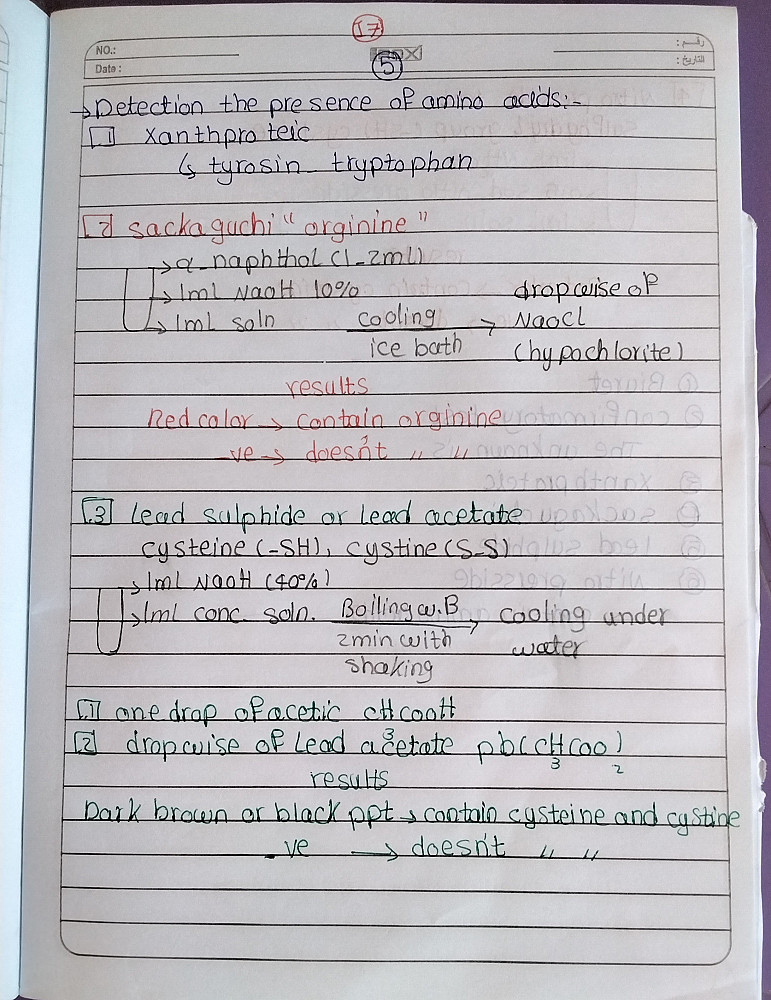 17
NO.:
رقم :
Date :
التاريخ :
5
→ Detection the presence of amino acids:-
1 xanthproteic
↳ tyrosin tryptophan
2 sackaguchi "arginine"
→ α-naphthol (1-2ml)
→ 1ml NaOH 10% dropwise of
→ 1ml soln cooling → NaOCl
ice bath (hypochlorite)
results
Red color → contain arginine
-ve → doesn't 〃 〃
3 Lead sulphide or Lead acetate
cysteine (-SH), cystine (S-S)
→ 1ml NaOH (40%)
→ 1ml conc. soln. Boiling w.B → cooling under
2min with water
shaking
1 one drop of acetic CH3COOH
2 dropwise of Lead acetate pb(CH3COO)2
results
Dark brown or black ppt → contain cysteine and cystine
-ve → doesn't 〃 〃